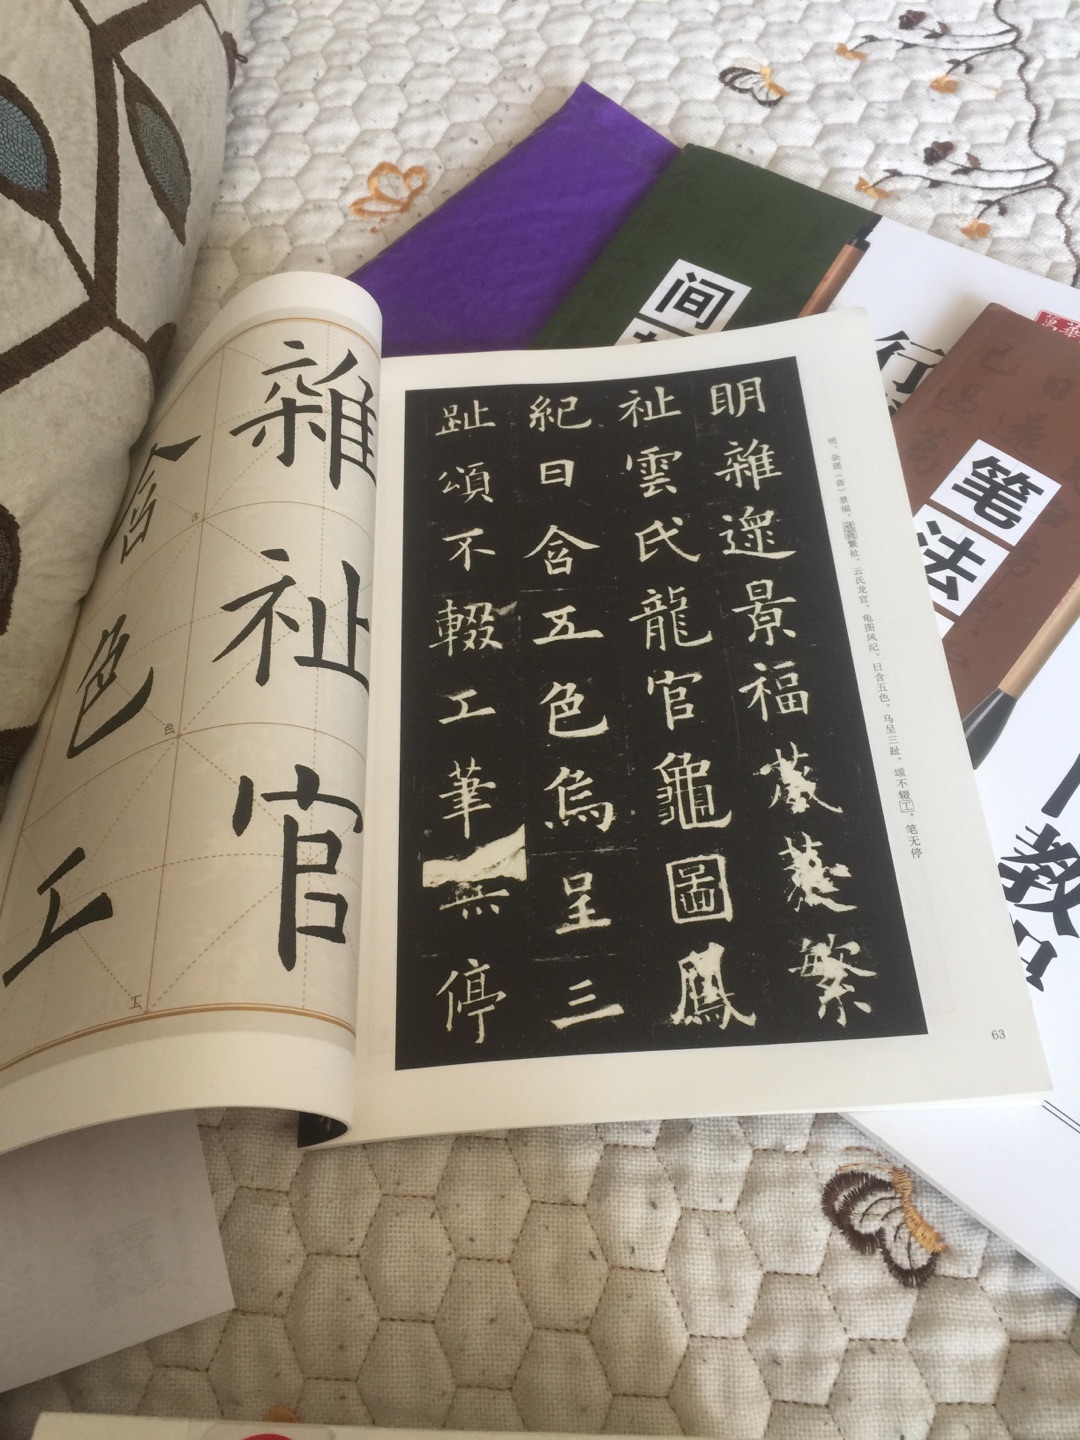 明雜遝景福葳蕤繁
祉雲氏龍官龜圖鳳
紀日含五色烏呈三
趾頌不輟工筆無停
明。杂遝（沓）景福，葳蕤繁祉，云氏龙官，龟图凤纪，日含五色，乌呈三趾，颂不辍工，笔无停
63
雜祉官
含色工
含
色
工
间
行
笔法
教